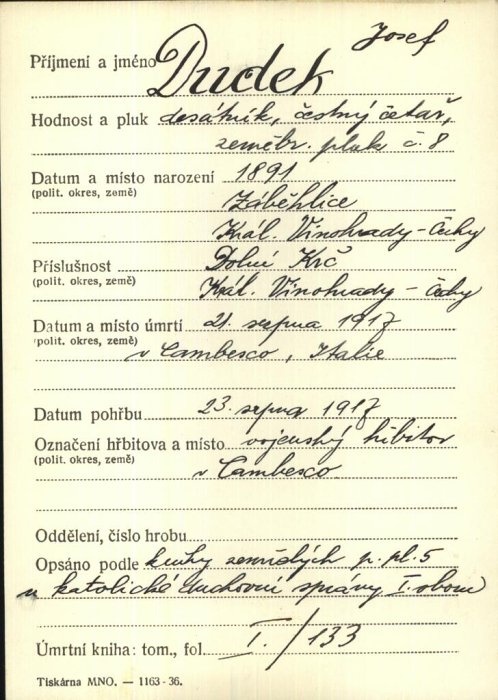 Josef
Příjmení a jméno Dudek
Hodnost a pluk desátník, čestný četař,
zeměbr. pluk č. 8
Datum a místo narození 1891
(polit. okres, země) Záběhlice
Král. Vinohrady - Čechy
Příslušnost Dolní Krč
(polit. okres, země) Král. Vinohrady - Čechy
Datum a místo úmrtí 21. srpna 1917
(polit. okres, země) v Cambesco, Italie
Datum pohřbu 23. srpna 1917
Označení hřbitova a místo vojenský hřbitov
(polit. okres, země) v Cambesco
Oddělení, číslo hrobu
Opsáno podle knihy zemřelých p. pl. 5
u katolické duchovní správy I. sboru
Úmrtní kniha: tom., fol. I. / 133
Tiskárna MNO. — 1163 - 36.